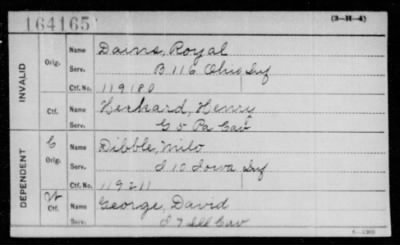 164165 (3-H-4)
INVALID
Orig. Name Dains, Royal
Serv. B 116 Ohio Inf
Ctf. No. 119180
Ctf. Name Heckard, Henry
Serv. G 5 Pa Cav
DEPENDENT
C
Orig. Name Dibble, Milo
Serv. I 10 Iowa Inf
Ctf. No. 119211
W
Ctf. Name George, David
Serv. I 7 Ill Cav